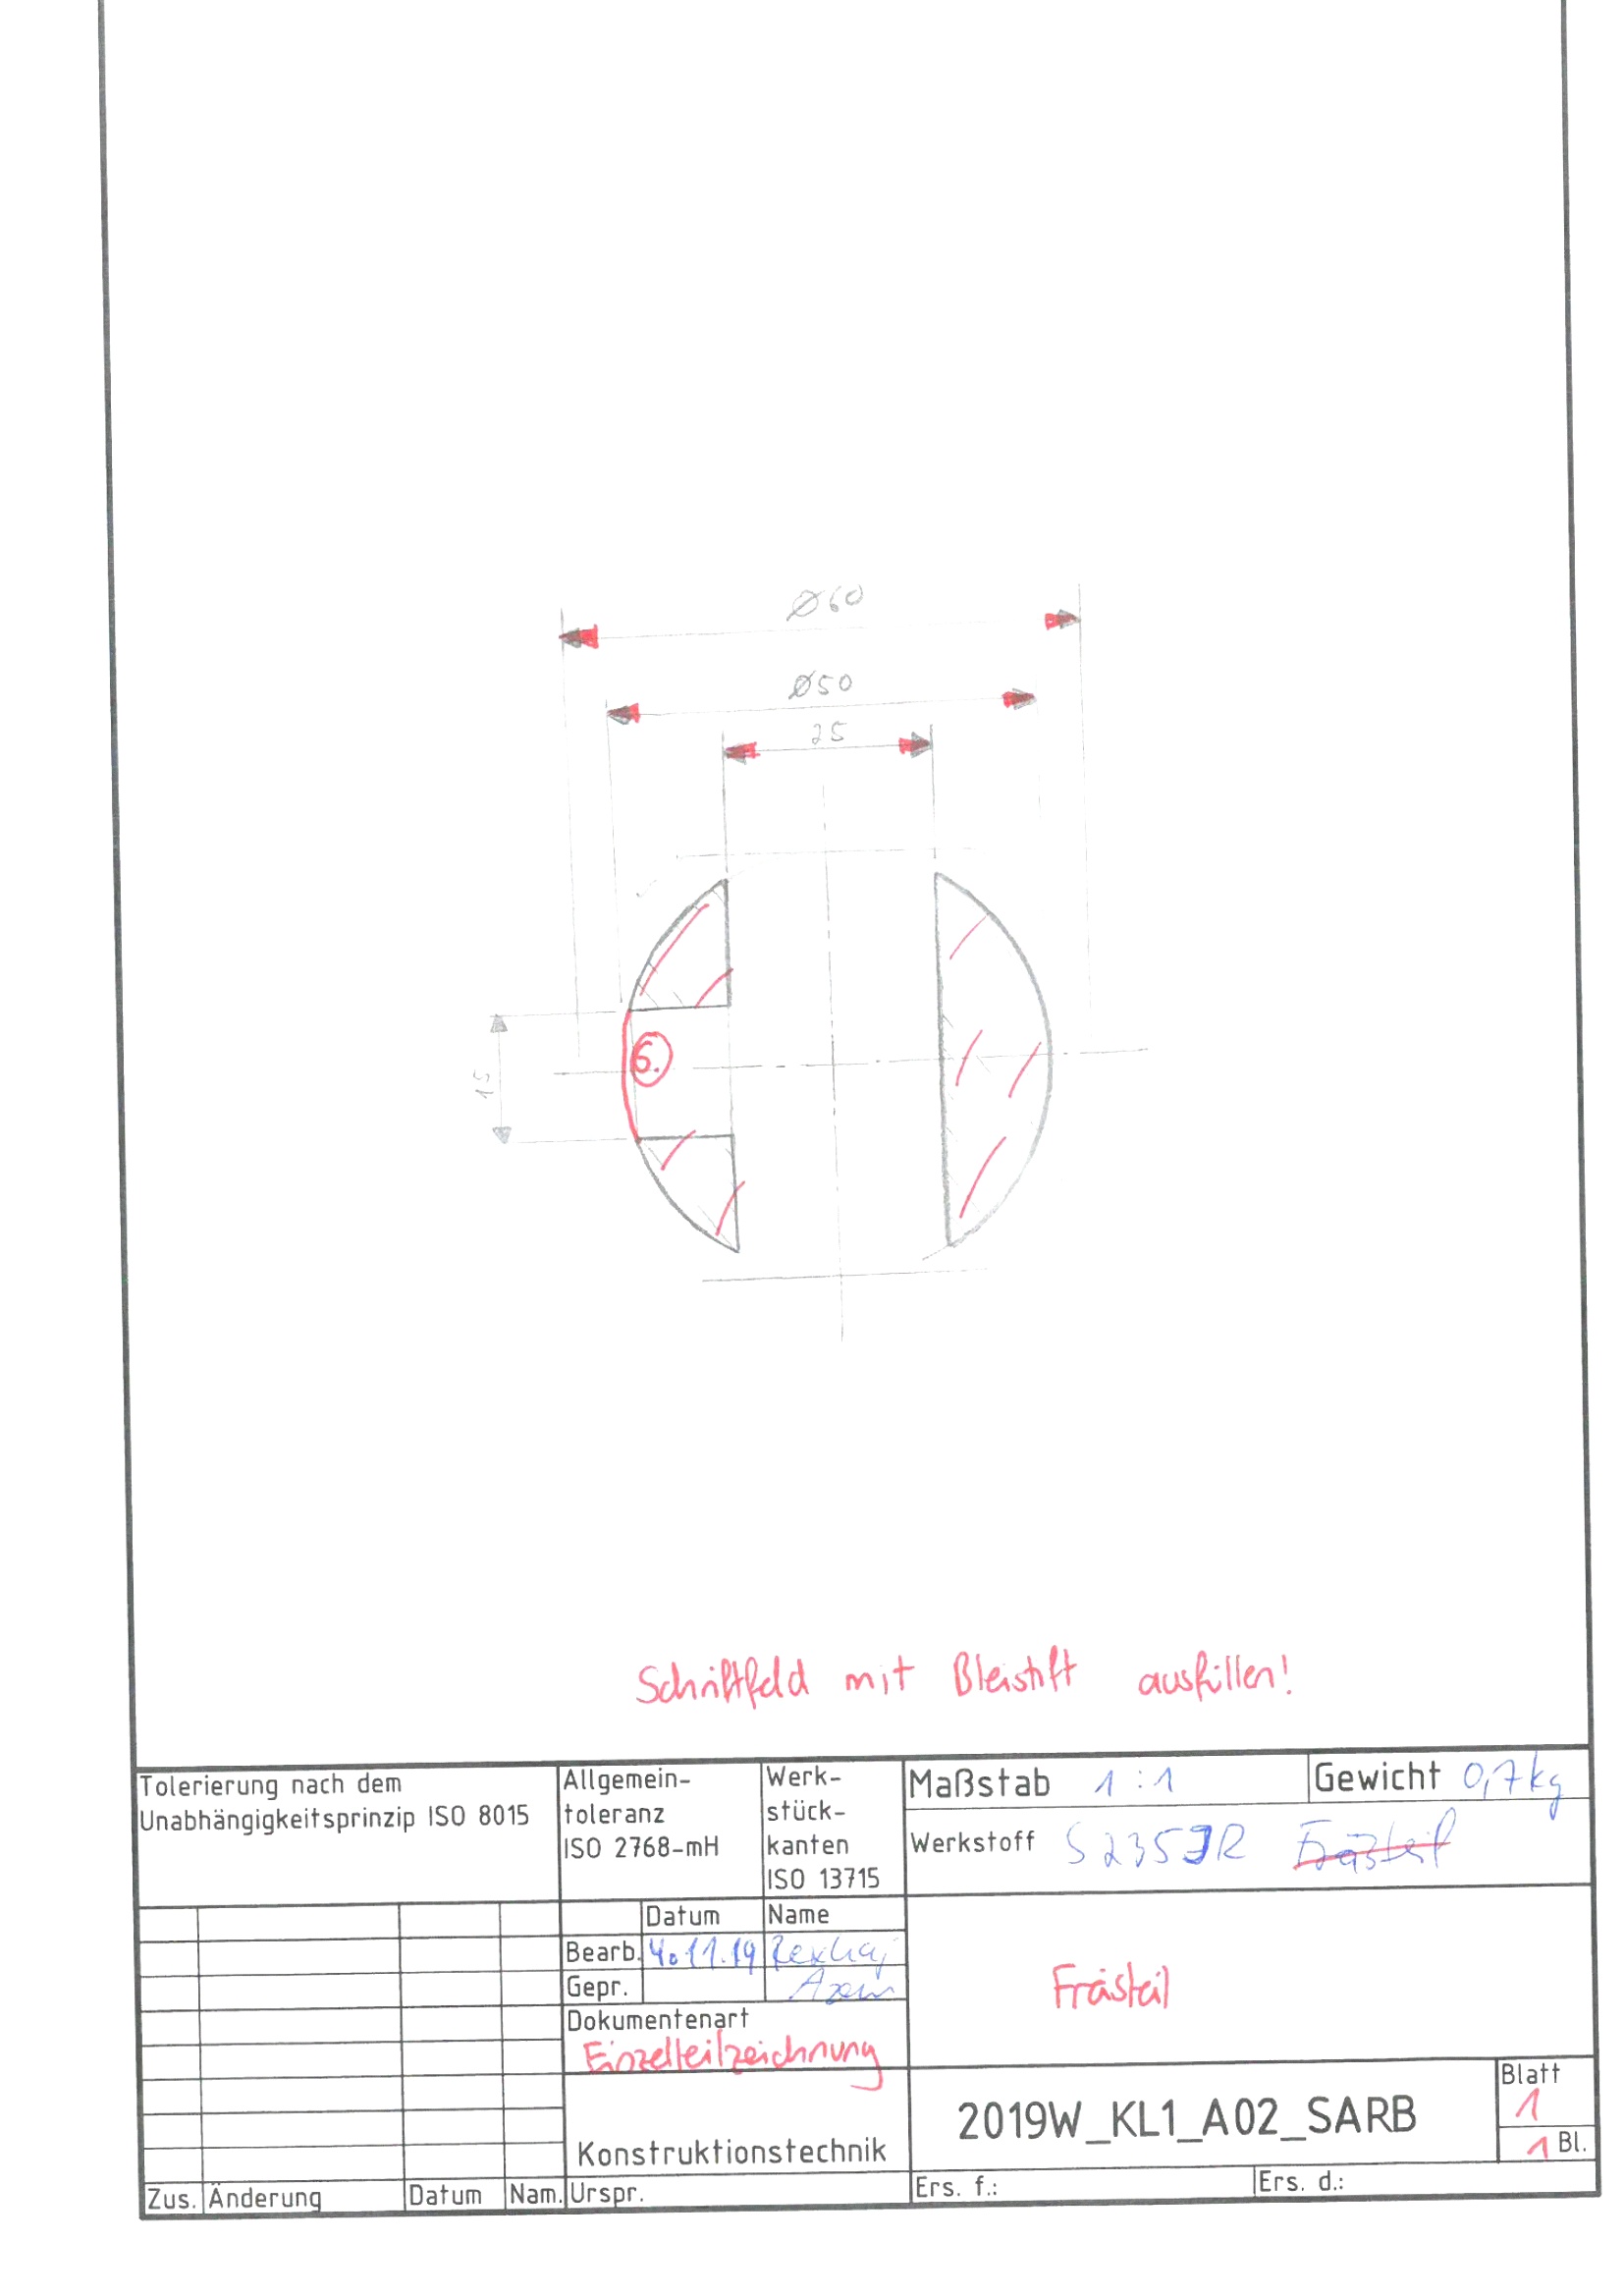 Ø60
Ø50
25
15
6.
Schriftfeld mit Bleistift ausfüllen!
Tolerierung nach dem
Unabhängigkeitsprinzip ISO 8015
Allgemein-
toleranz
ISO 2768-mH
Werk-
stück-
kanten
ISO 13715
Maßstab 1:1
Gewicht 0,7kg
Werkstoff S235JR Frästeil
Datum Name
Bearb. 4.11.19 Rexhaj
Gepr. Azem
Dokumentenart
Einzelteilzeichnung
Frästeil
Konstruktionstechnik
2019W_KL1_A02_SARB
Blatt
1
1 Bl.
Zus. Änderung Datum Nam. Urspr.
Ers. f.: Ers. d.: